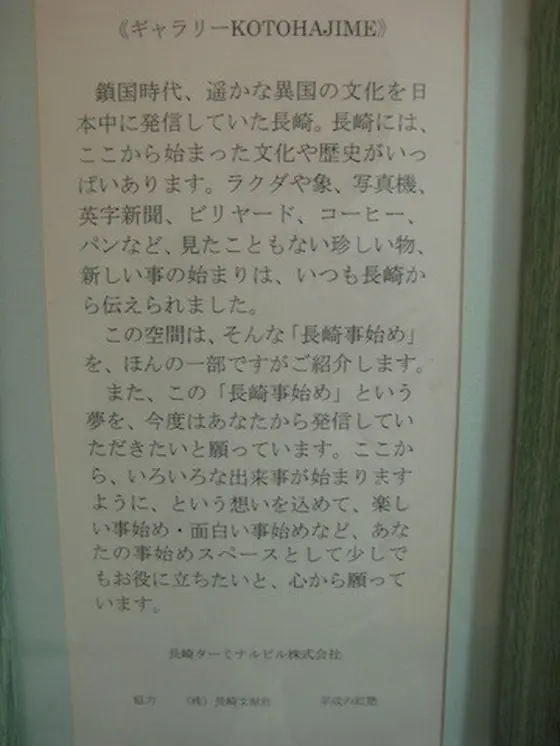 《ギャラリーKOTOHAJIME》
鎖国時代、遥かな異国の文化を日
本中に発信していた長崎。長崎には、
ここから始まった文化や歴史がいっ
ぱいあります。ラクダや象、写真機、
英字新聞、ビリヤード、コーヒー、
パンなど、見たこともない珍しい物、
新しい事の始まりは、いつも長崎か
ら伝えられました。
この空間は、そんな「長崎事始め」
を、ほんの一部ですがご紹介します。
また、この「長崎事始め」という
夢を、今度はあなたから発信してい
ただきたいと願っています。ここか
ら、いろいろな出来事が始まります
ように、という想いを込めて、楽し
い事始め・面白い事始めなど、あな
たの事始めスペースとして少しで
もお役に立ちたいと、心から願って
います。
長崎ターミナルビル株式会社
協力 （株）長崎文献社